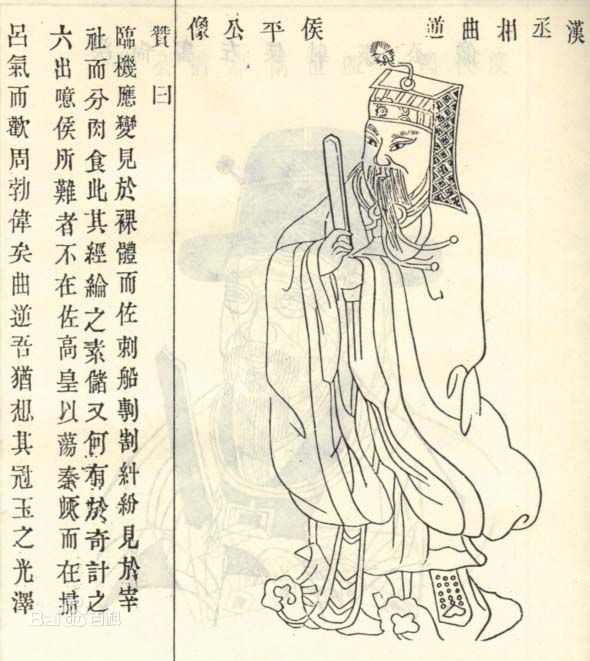 漢丞相曲逆侯平公像
贊曰
臨機應變見於裸體而佐刺船剸割糾紛見於宰
社而分肉食此其經綸之素儲又何有於奇計之
六出噫侯所難者不在佐高皇以蕩秦而在掃
呂氣而歡周勃偉矣曲逆吾猶想其冠玉之光澤
Bai百科